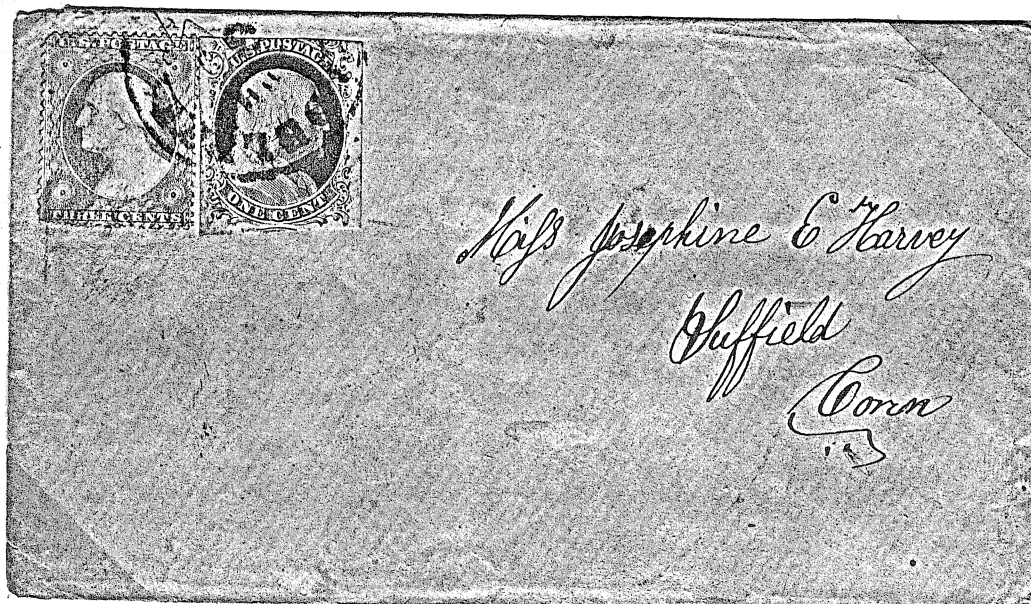 U.S. POSTAGE
THREE CENTS
U.S. POSTAGE
ONE CENT
Miss Josephine E Harvey
Suffield
Conn